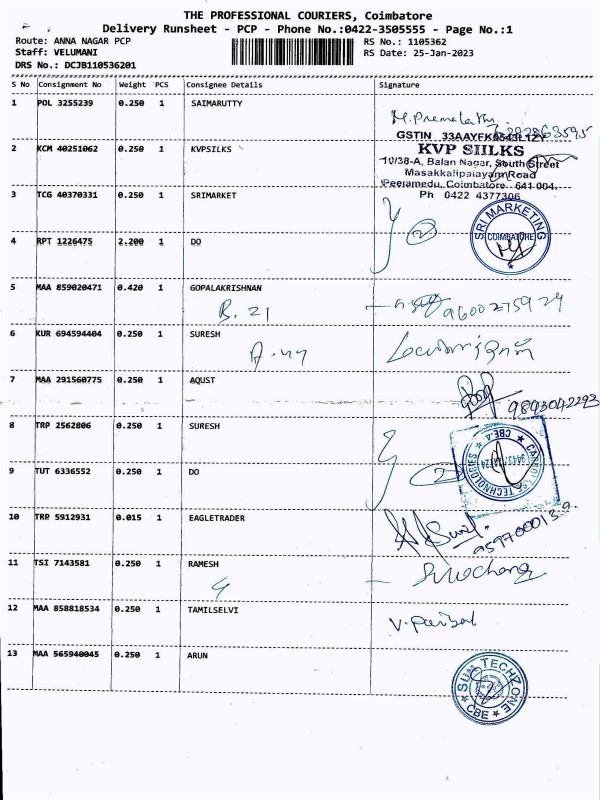 THE PROFESSIONAL COURIERS, Coimbatore
Delivery Runsheet - PCP - Phone No.:0422-3505555 - Page No.:1
Route: ANNA NAGAR PCP
RS No.: 1105362
Staff: VELUMANI
RS Date: 25-Jan-2023
DRS No.: DCJB110536201
S No Consignment No Weight PCS Consignee Details Signature
1 POL 3255239 0.250 1 SAIMARUTTY
M. Premalatha
GSTIN
2 KCM 40251062 0.250 1 KVPSILKS
KVP SIILKS
10/38-A, Balan Nagar, South Street
Masakkalipalayam Road
Peelamedu, Coimbatore - 641 004.
Ph 0422 4377306
3 TCG 40370331 0.250 1 SRIMARKET
2
SRI MARKETING
COIMBATORE
4 RPT 1226475 2.200 1 DO
5 MAA 859020471 0.420 1 GOPALAKRISHNAN
B. 21
9600275924
6 KUR 694594404 0.250 1 SURESH
7 MAA 291560775 0.250 1 AQUST
9893042293
8 TRP 2562806 0.250 1 SURESH
2
TECHNOLOGIES
CBE-4
9 TUT 6336552 0.250 1 DO
10 TRP 5912931 0.015 1 EAGLETRADER
11 TSI 7143581 0.250 1 RAMESH
12 MAA 858818534 0.250 1 TAMILSELVI
13 MAA 565940045 0.250 1 ARUN
SUN TECHZONE
CBE